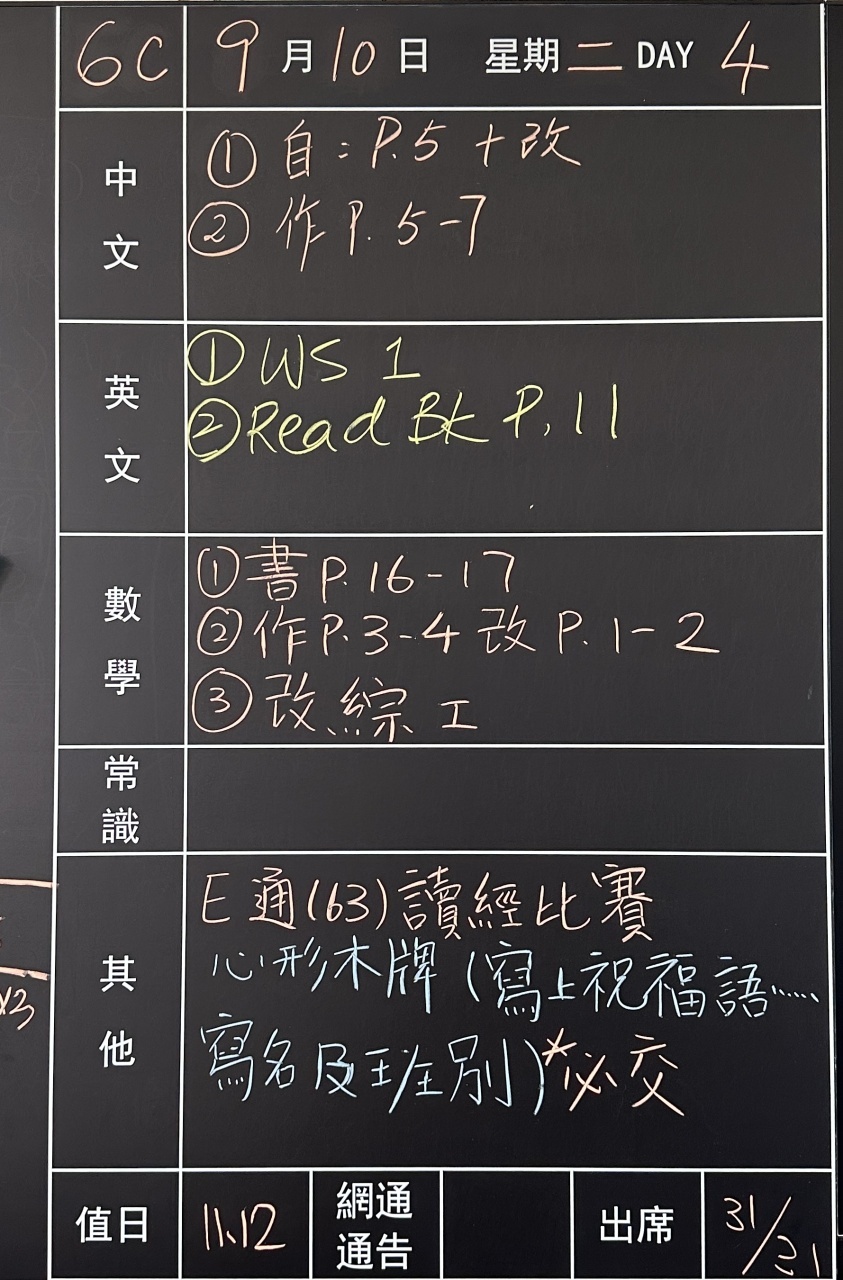 6C 9月10日 星期二 DAY 4
中文
① 自：P.5 + 改
② 作 P. 5-7
英文
① WS 1
② Read Bk P.11
數學
① 書 P.16-17
② 作 P.3-4 改 P.1-2
③ 改綜工
常識
其他
E通(63)讀經比賽
心形木牌 (寫上祝福語……
寫名及班別)*必交
值日 11、12 網通通告 出席 31/31